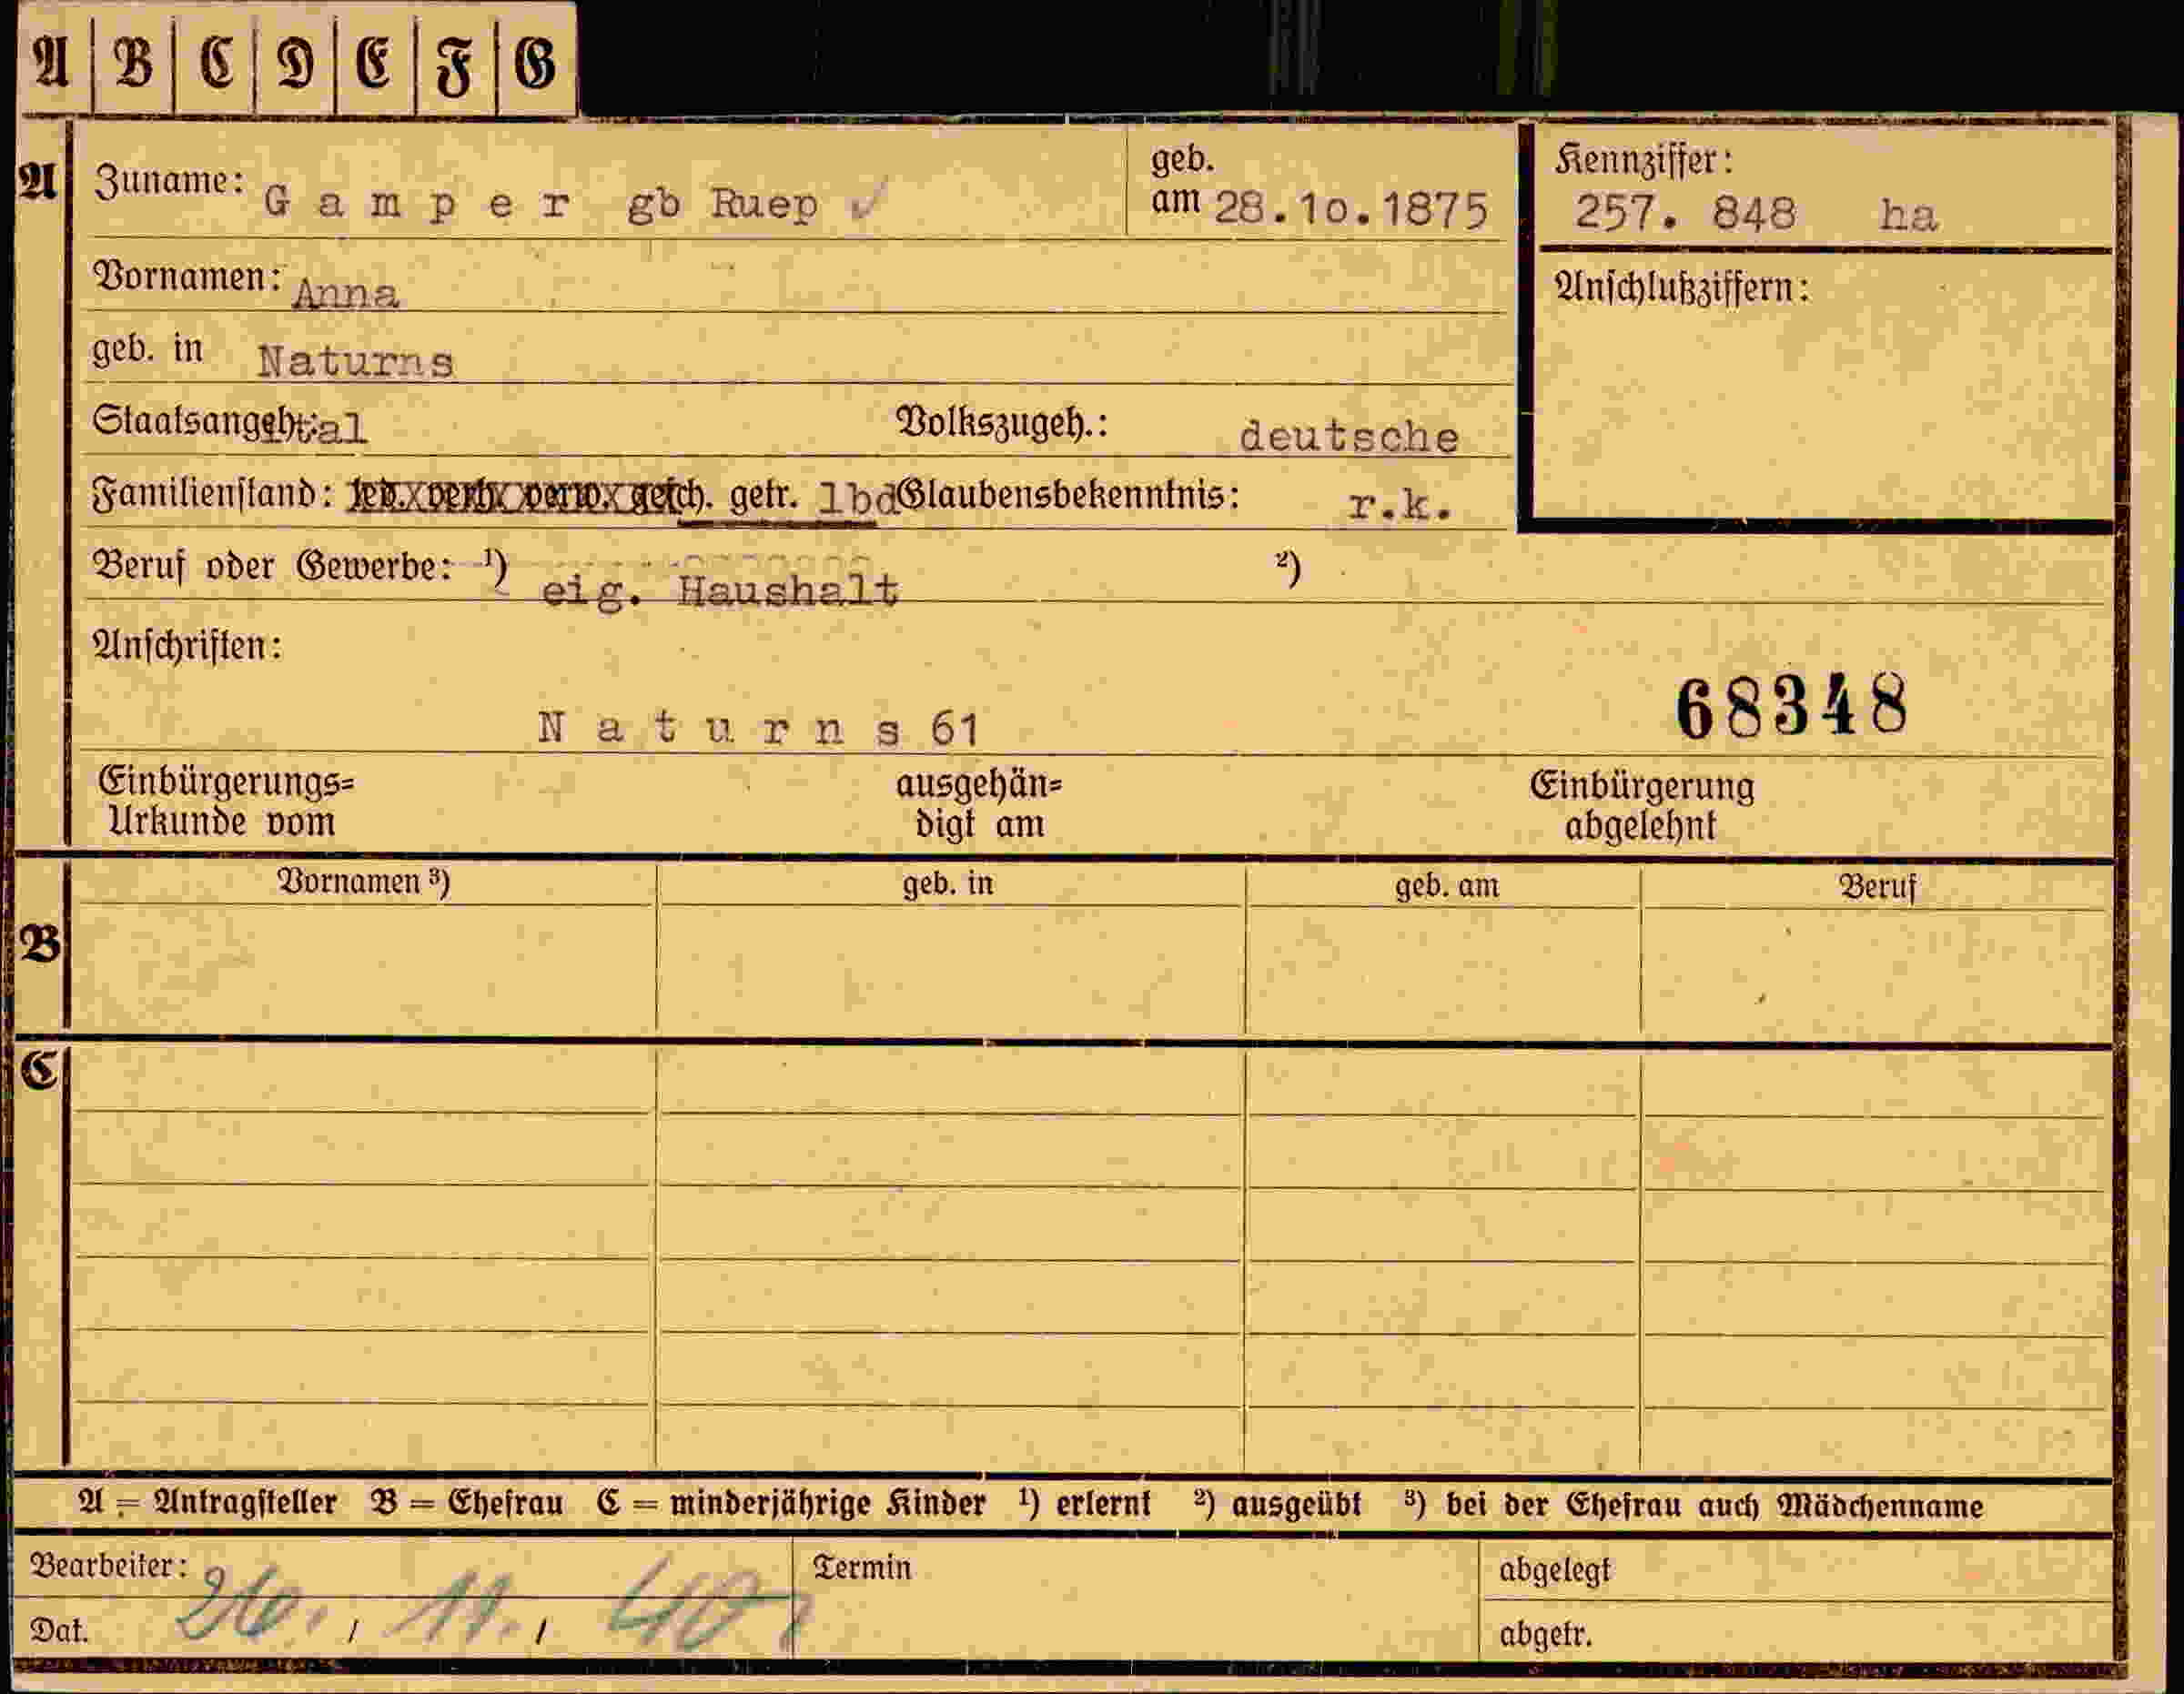 A B C D E F G
A Zuname: Gamper gb Ruep ✓ geb. am 28.10.1875 Kennziffer: 257. 848 ha
Vornamen: Anna Anschlußziffern:
geb. in Naturns
Staatsangeh.: ital Volkszugeh.: deutsche
Familienstand: led. verh. verw. gesch. getr. lbd Glaubensbekenntnis: r.k.
Beruf oder Gewerbe: ¹) eig. Haushalt ²)
Anschriften:
Naturns 61 68348
Einbürgerungs= ausgehän= Einbürgerung
Urkunde vom digt am abgelehnt
Vornamen ³) geb. in geb. am Beruf
B
C
A = Antragsteller B = Ehefrau C = minderjährige Kinder ¹) erlernt ²) ausgeübt ³) bei der Ehefrau auch Mädchenname
Bearbeiter: Termin abgelegt
Dat. 26. / 11. / 40 abgetr.